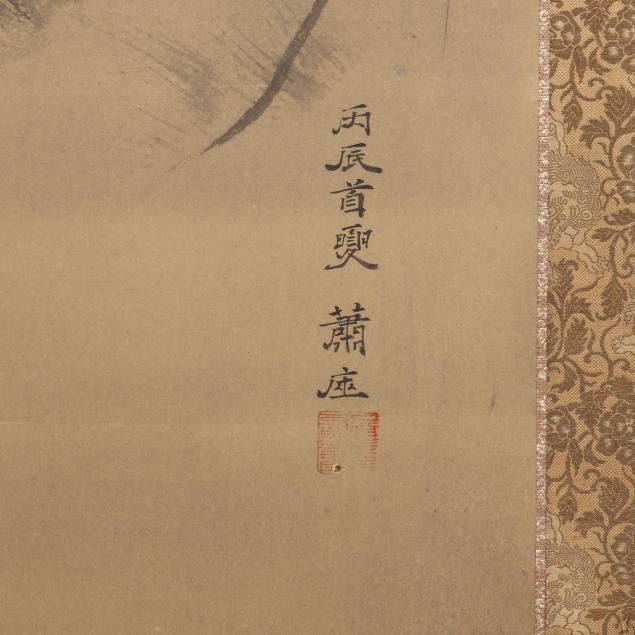 丙辰首夏 蕭座